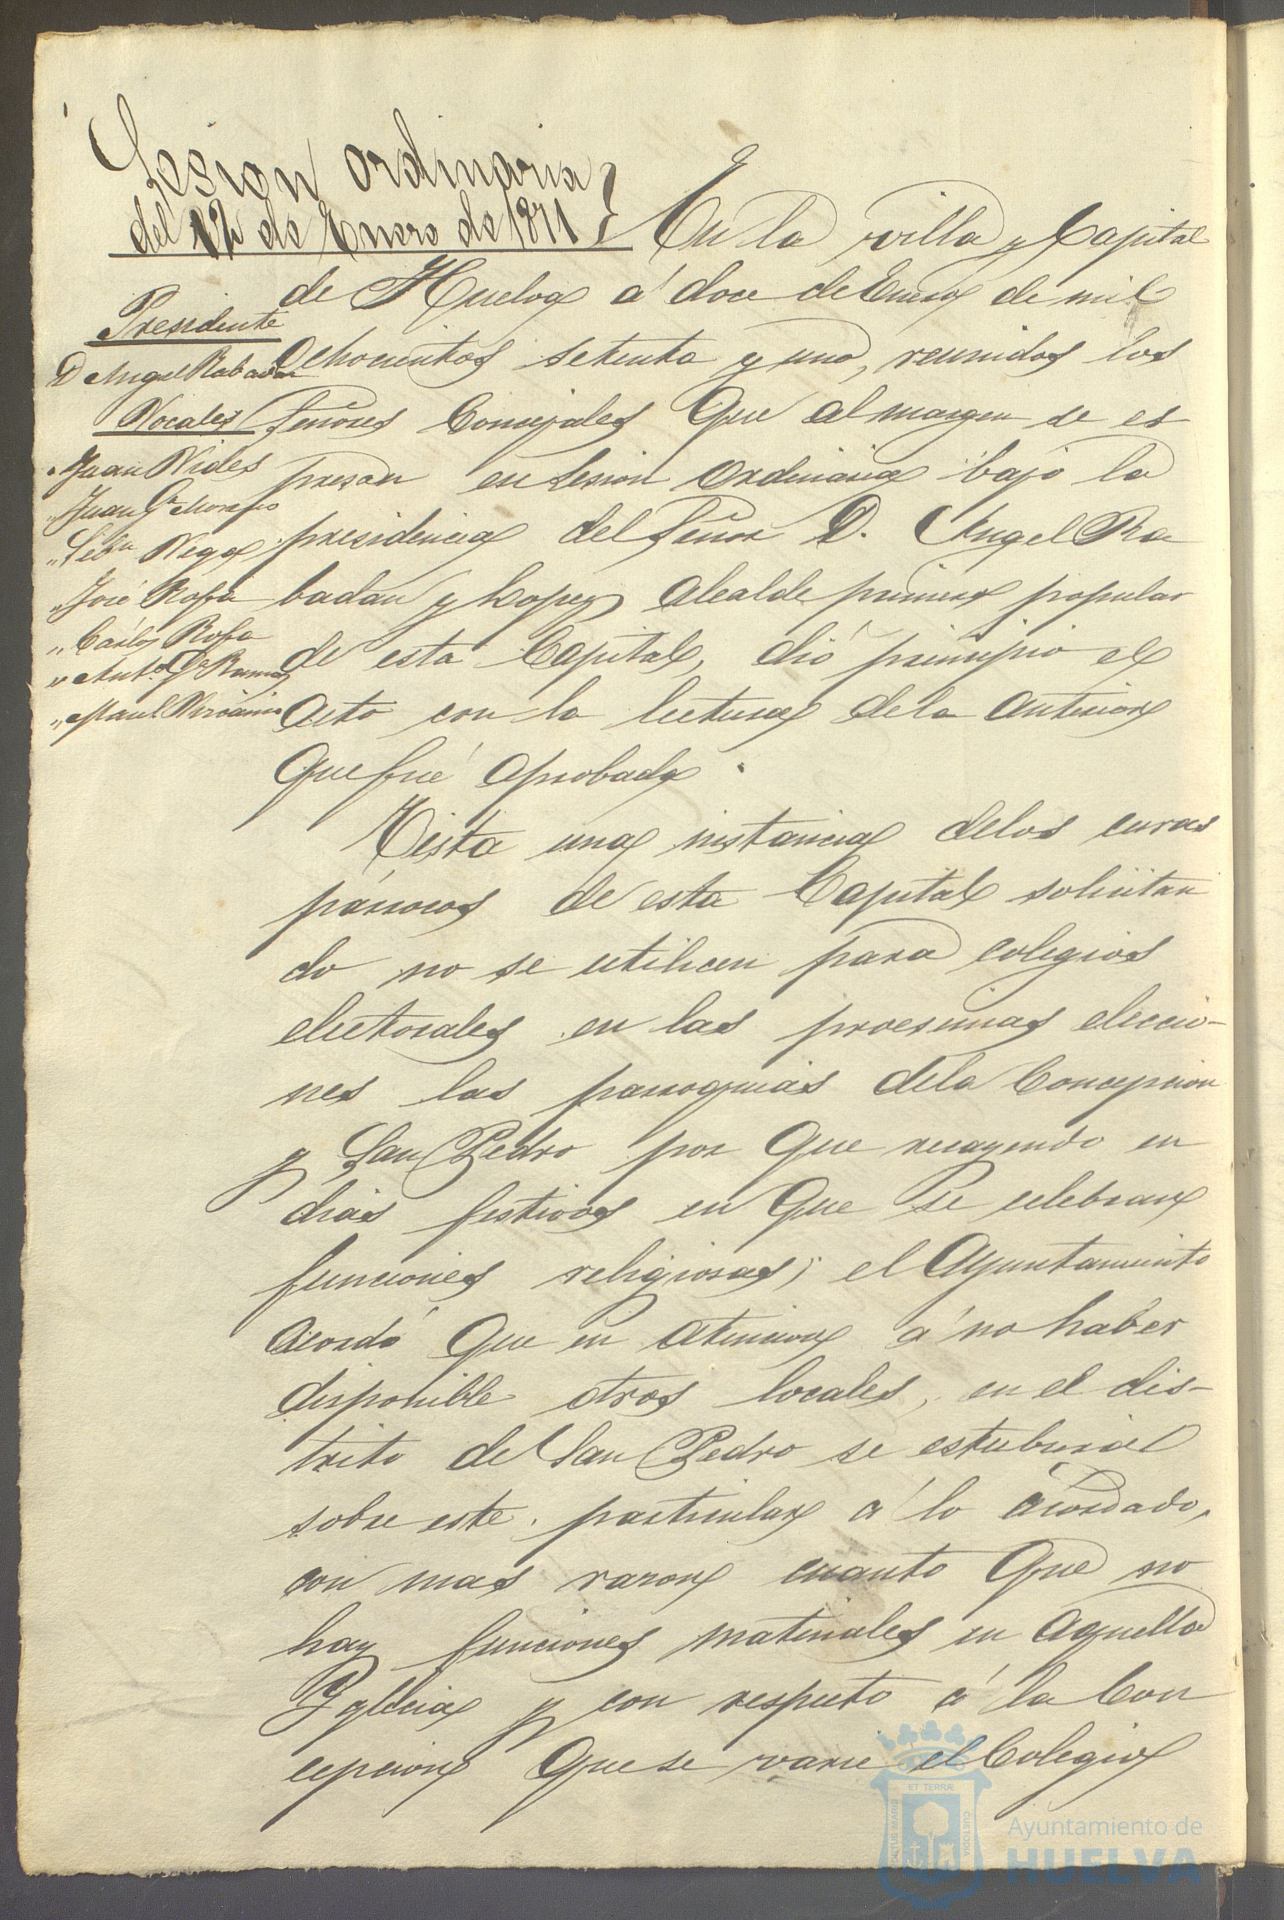 Sesion ordinaria
del 12 de Enero de 1871
En la villa y Capital
de Huelva á doce de Enero de mil
ochocientos setenta y uno, reunidos los
Señores Concejales que al margen se es
presan en sesion ordinaria bajo la
presidencia del Señor D. Angel Ra
badan y Lopez Alcalde primero popular
de esta Capital, dió principio el
acto con la lectura de la anterior
que fué aprobada.
Presidente
D Angel Rabadan
Vocales
" Juan Vides
" Juan Gª Morales
" Sebn Vega
" José Rofa
" Cárlos Rofa
" Antº Gª Ramos
" Manl
Vista una instancia de los curas
párrocos de esta Capital solicitan
do no se utilicen para colegios
electorales en las procsimas eleccio-
nes las parroquias de la Concepcion
y San Pedro por que recayendo en
dias festivos en que se celebran
funciones religiosas; el Ayuntamiento
acordó que en atencion á no haber
disponible otros locales, en el dis-
trito de San Pedro se estubiera
sobre este particular á lo acordado,
con mas razon cuanto que no
hay funciones matinales en aquella
Yglecia y con respecto á la Con
cepcion que se varie el Colegio
ET TERRÆ
CUSTODIA
Ayuntamiento de
HUELVA